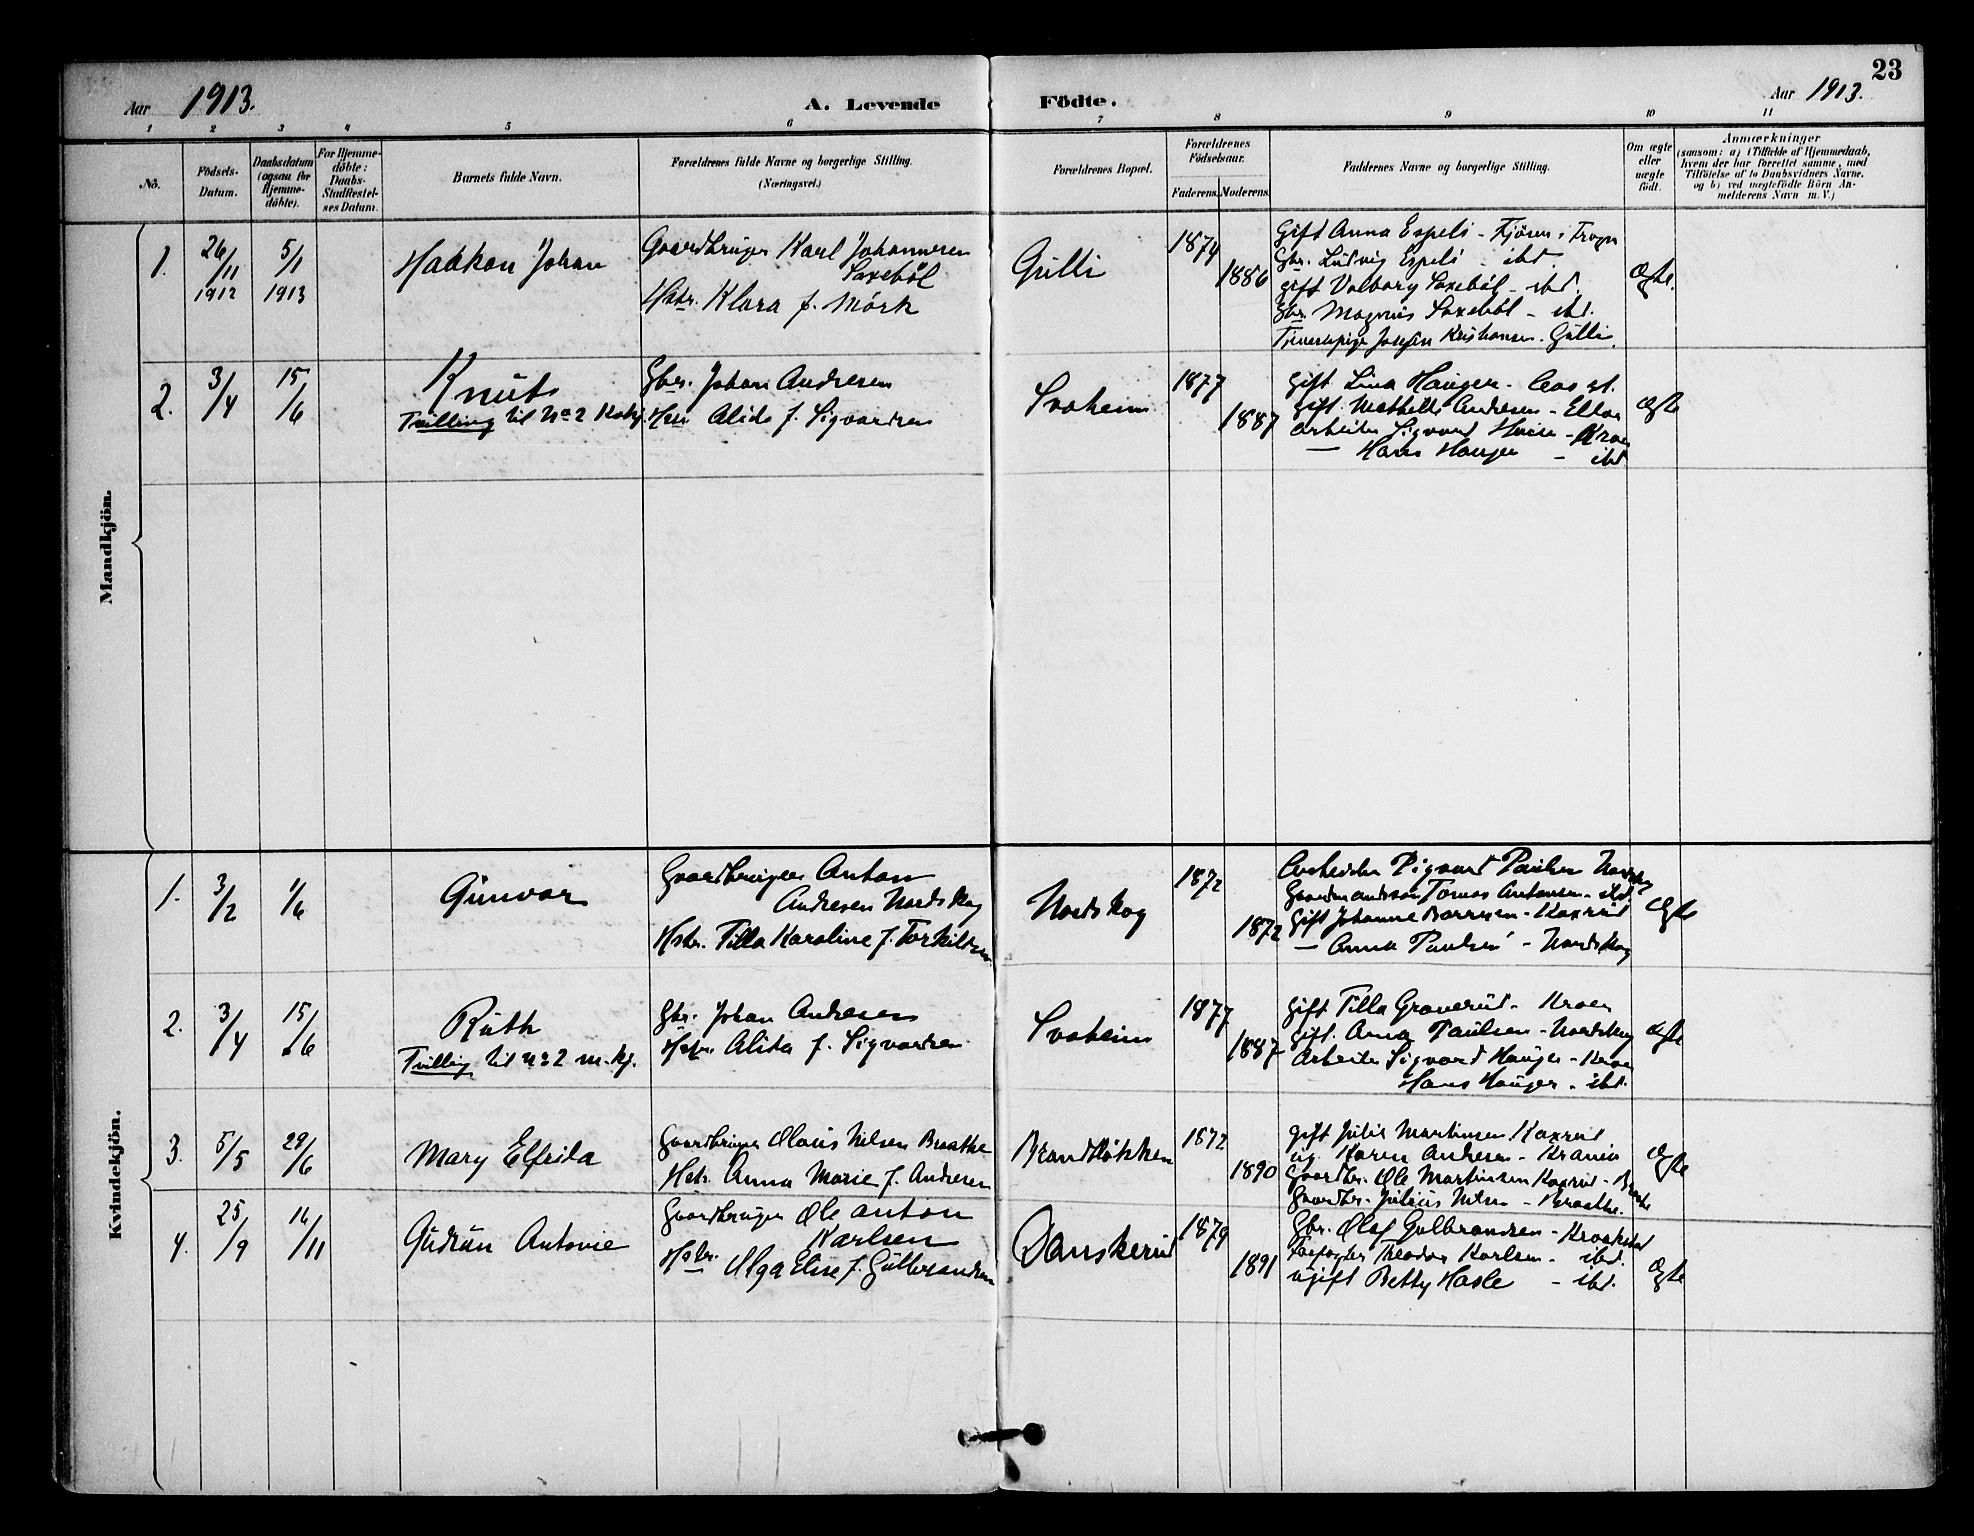 Aar 1913.
A. Levende Födte.
Aar 1913.
23
1 2 3 4 5 6 7 8 9 10 11
No.
Födsels-Datum.
Daabsdatum (ogsaa for Hjemme-döbte).
For Hjemme-döbte: Daabs-Stadfæstel-ses Datum.
Barnets fulde Navn.
Forældrenes fulde Navne og borgerlige Stilling.
(Næringsvei.)
Forældrenes Bopæl.
Forældrenes Födselsaar.
Faderens. Moderens.
Faddernes Navne og borgerlige Stilling.
Om ægte eller uægte födt.
Anmærkninger
(saasom: a) i Tilfælde af Hjemmedaab,
hvem der har forrettet samme, med
Tilföielse af to Daabsvidners Navne,
og b) ved uægtefödte Börn An-
melderens Navn m. V.)
Mandkjön.
1.
26/11 1912
5/1 1913
Haakon Johan
Gaardbruger Karl Johannesen
Saxeböl
Hstr. Klara f. Mörk
Gulli
1874
1886
Gift Anna Espeli - Fjöser, Frogn
Gbr. Ludvig Espeli - ibd.
gift Valborg Saxeböl - ibd.
Gbr. Magnus Saxeböl - ibd.
Tjenestepige Josefin Kristiansen. Gulli.
Ægte.
2.
3/4
15/6
Knut
Tvilling til No 2 Kvkj.
Gbr. Johan Andresen
Hstr. Alida f. Sigvardsen
Svaheim
1877
1887
gift Lina Hauger - Aas st.
gift Mathilde Andresen -
arbeider Sigvard Hauger - Kroer
— Hans Hauger - ibd
Ægte
Kvindekjön.
1.
3/2
1/6
Gunvor
Gaardbruger Anton
Andresen Nordskog
Hstr. Tilla Karoline f. Torkildsen
Nordskog
1872
1872
Arbeider Sigvard Paulsen Nordskog
Gaardmandssøn Tomas Antonsen - ibd.
Gift Johanne Borresen - Kaxrud
— Anna Paulsen - Nordskog
Ægte
2.
3/4
15/6
Ruth
Tvilling til no 2 m.kj.
Gbr. Johan Andresen
Hstr. Alida f. Sigvardsen
Svaheim
1877
1887
Gift Tilla Graverud - Kroer
gift. Anna Paulsen - Nordskog
Arbeider Sigvard Hauger - Kroer
Hans Hauger - ibd.
ægte
3.
5/5
29/6
Mary Elfrida
Gaardbruger Olaus Nilsen Braathe
Hstr. Anna Marie f. Andresen
Brandløkken
1872
1890
gift Julie Martinsen Kaxrud
ug. Karen Andresen -
Gaardbr. Ole Martinsen Kaxrud -
Gaardbr. Julius Nilsen - Braathe.
Ægte
4.
25/9
16/11
Gudrun Antonie
Gaardbruger Ole Anton
Karlsen
Hstr. Olga Elise f. Gulbrandsen
Danskerud
1879
1891
Gbr. Olaf Gulbrandsen - Kraakstad
Theodor Karlsen - ibd.
ugift Betty Hasle - ibd.
Ægte